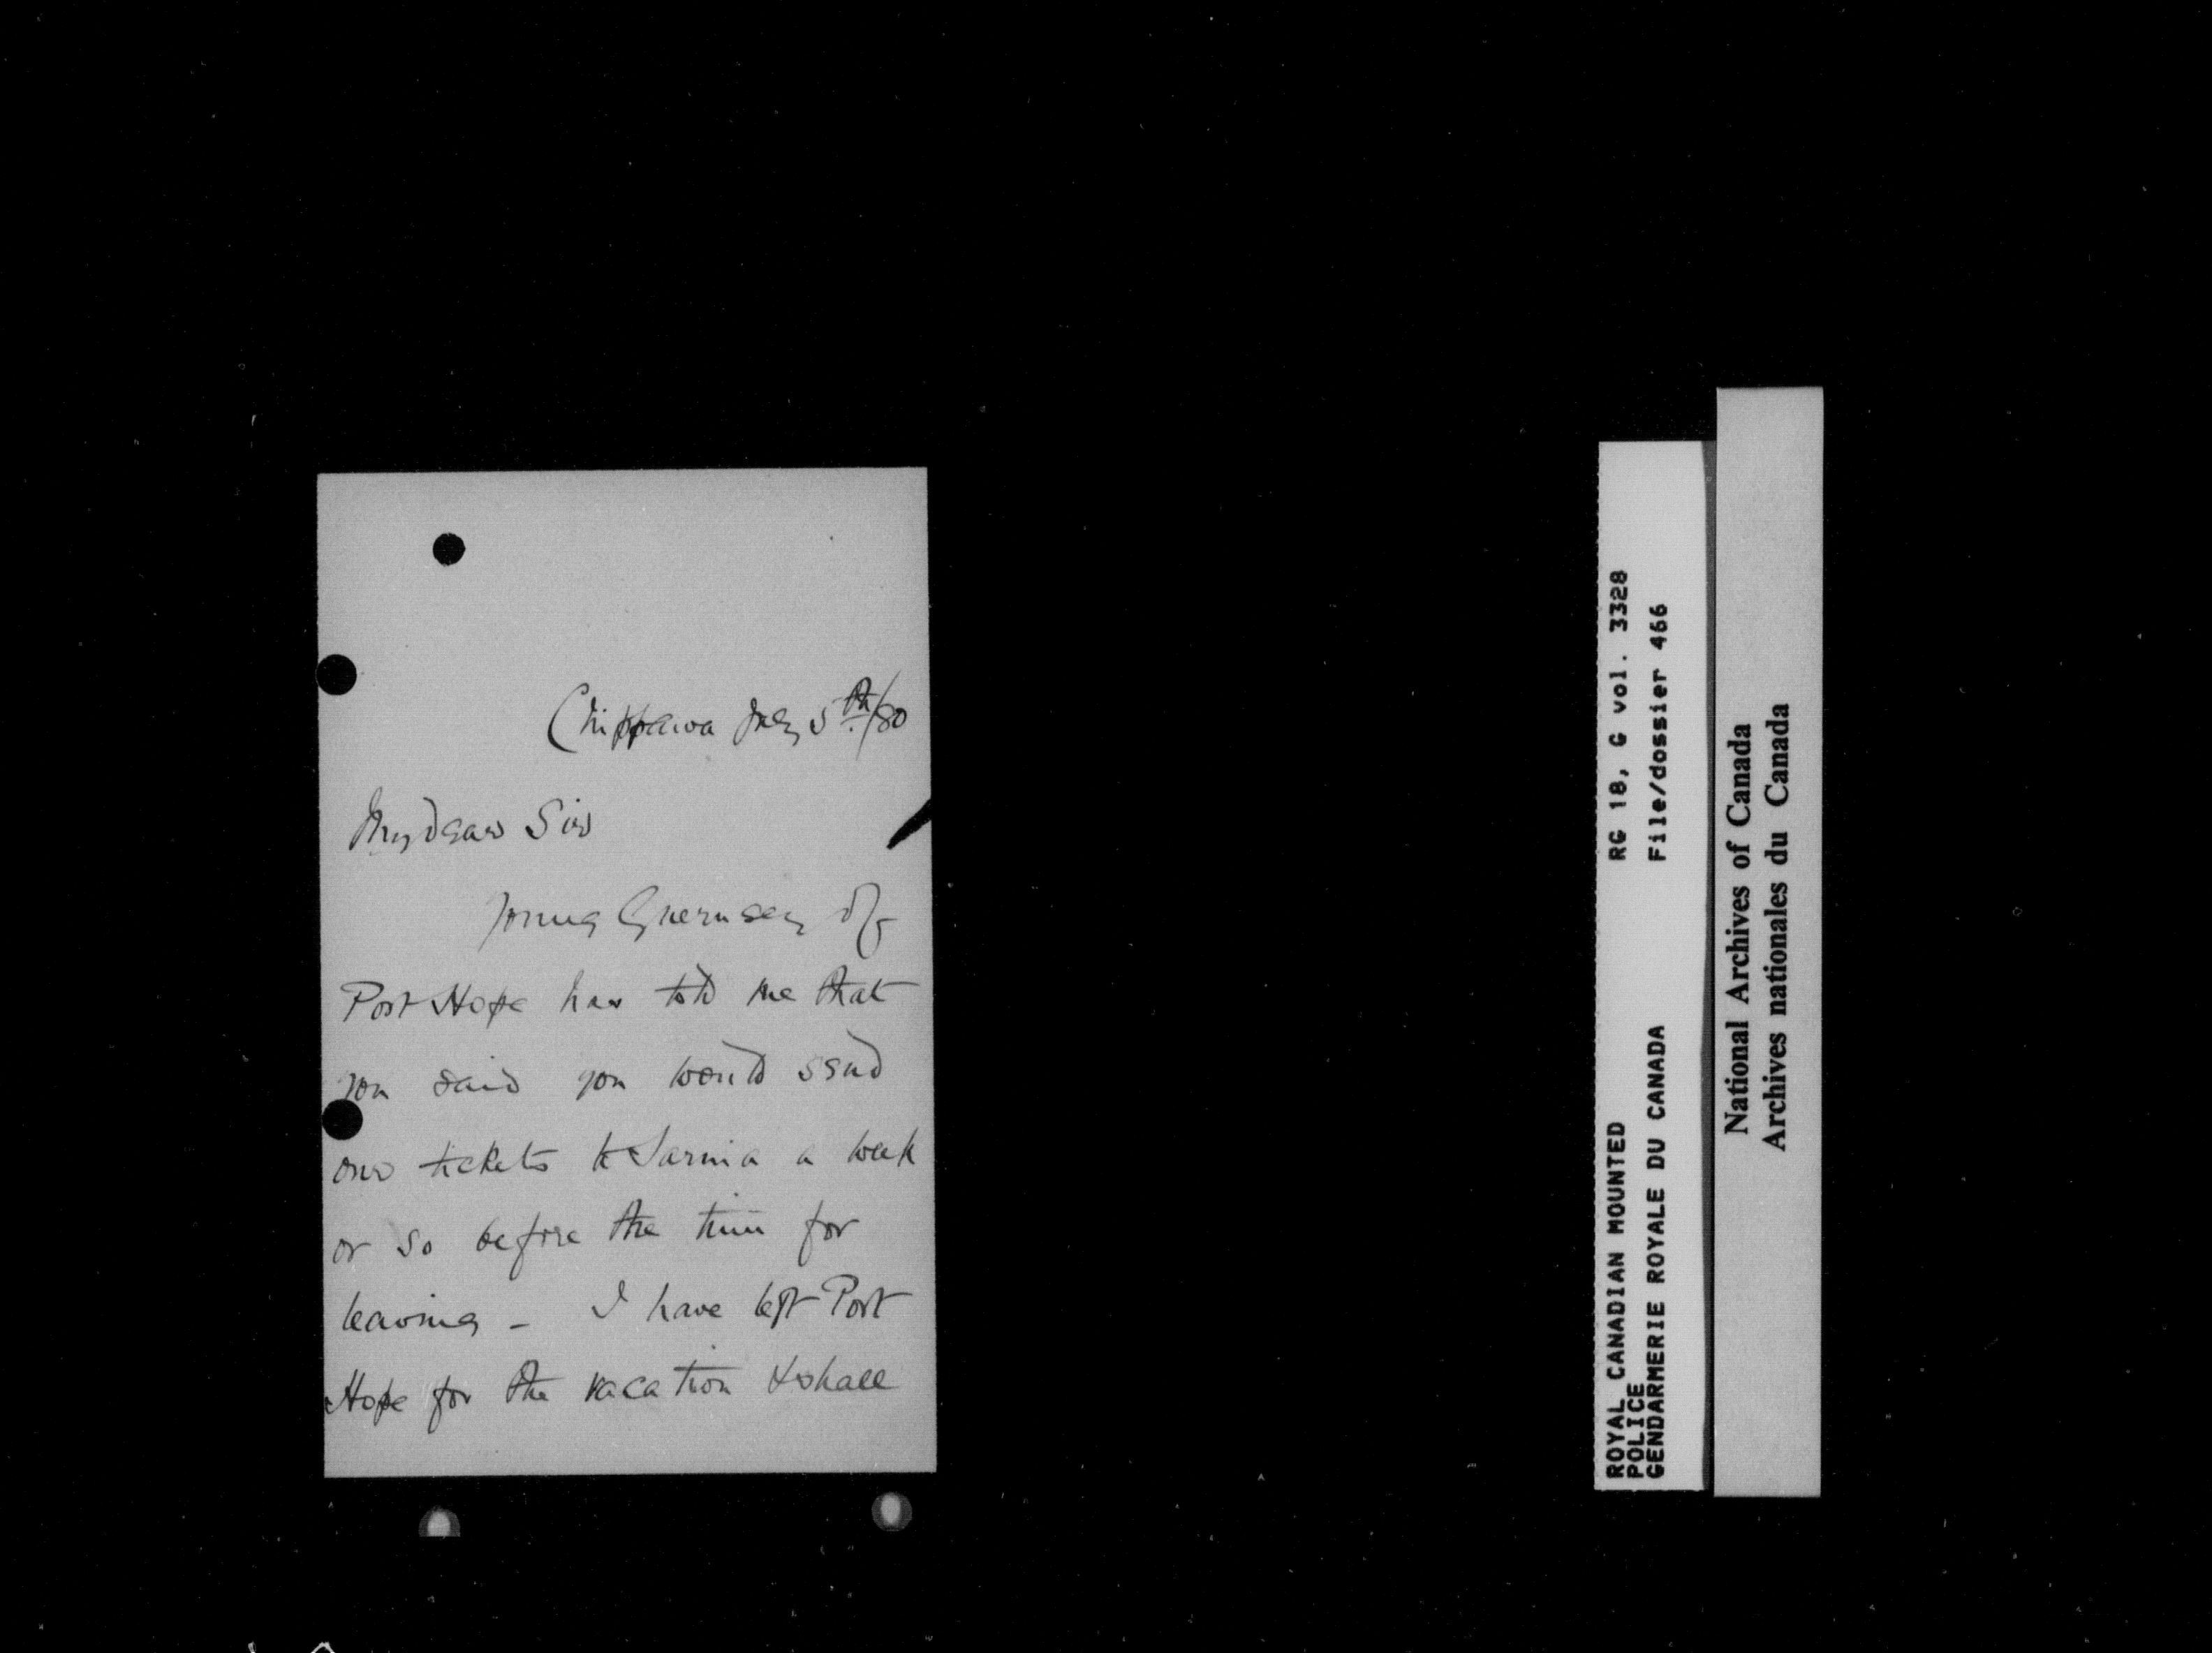 Chippawa July 5th/80
My dear Sir
Young Guernsey of
Port Hope has told me that
you said you would send
our tickets to Sarnia a week
or so before the time for
leaving - I have left Port
Hope for the vacation & shall
ROYAL CANADIAN MOUNTED
POLICE
GENDARMERIE ROYALE DU CANADA
RG 18, G vol. 3328
File/dossier 466
National Archives of Canada
Archives nationales du Canada